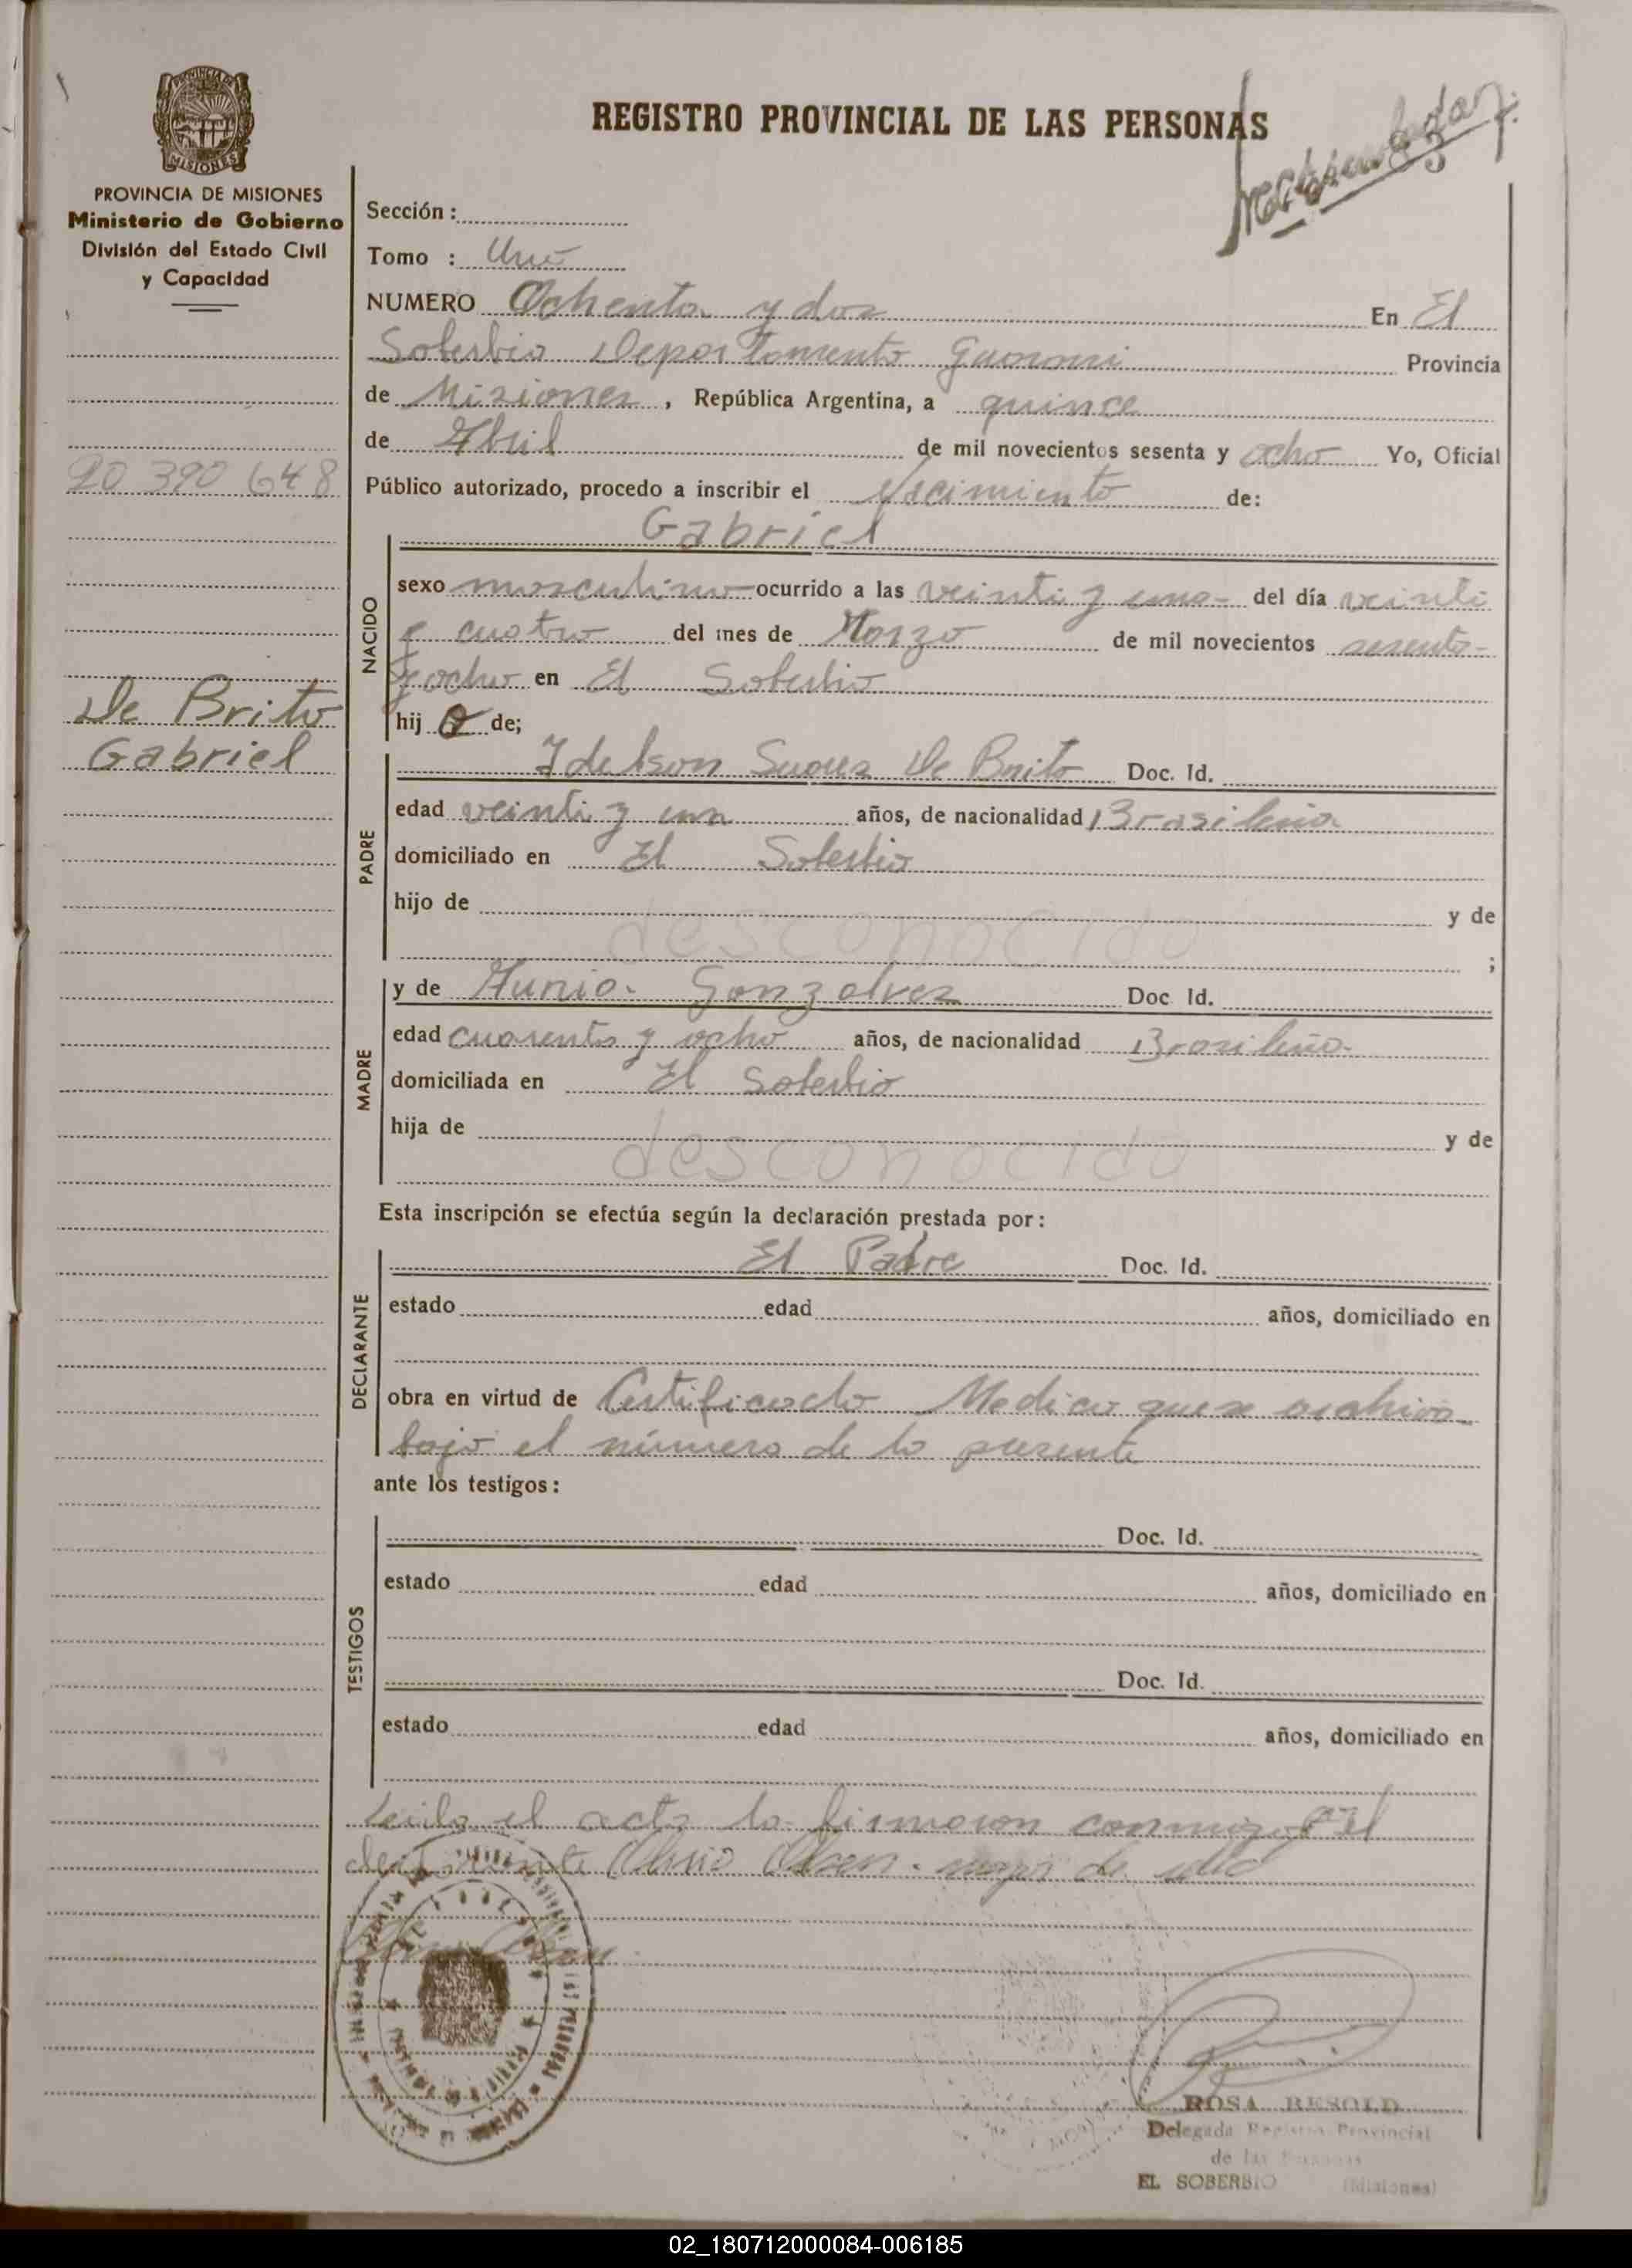 REGISTRO PROVINCIAL DE LAS PERSONAS
MISIONES
PROVINCIA DE MISIONES
Ministerio de Gobierno
División del Estado Civil
y Capacidad
20 390 648
De Brito
Gabriel
Sección :
Tomo : Uno
NUMERO Ochenta y dos En El
Soberbio Departamento Guarani Provincia
de Misiones , República Argentina, a quince
de Abril de mil novecientos sesenta y ocho Yo, Oficial
Público autorizado, procedo a inscribir el Nacimiento de:
Gabriel
NACIDO
sexo masculino ocurrido a las veinti y uno del día veinti
y cuatro del mes de Marzo de mil novecientos sesenta
y ocho en El Soberbio
hij o de;
PADRE
Idelson Suares De Brito Doc. Id.
edad veinti y un años, de nacionalidad Brasileña
domiciliado en El Soberbio
hijo de y de
desconocido
;
MADRE
y de Gonzalvez Doc Id.
edad cuarenta y ocho años, de nacionalidad Brasileña
domiciliada en El Soberbio
hija de y de
desconocido
Esta inscripción se efectúa según la declaración prestada por:
DECLARANTE
El Padre Doc. Id.
estado edad años, domiciliado en
obra en virtud de Certificado Medico que se archiva
bajo el número de la presente
ante los testigos:
TESTIGOS
Doc. Id.
estado edad años, domiciliado en
Doc. Id.
estado edad años, domiciliado en
Leida el acta la firmaron conmigo el
mayor de
ROSA RESOLD
Delegada Registro Provincial
de las Personas
EL SOBERBIO (Misiones)
02_180712000084-006185